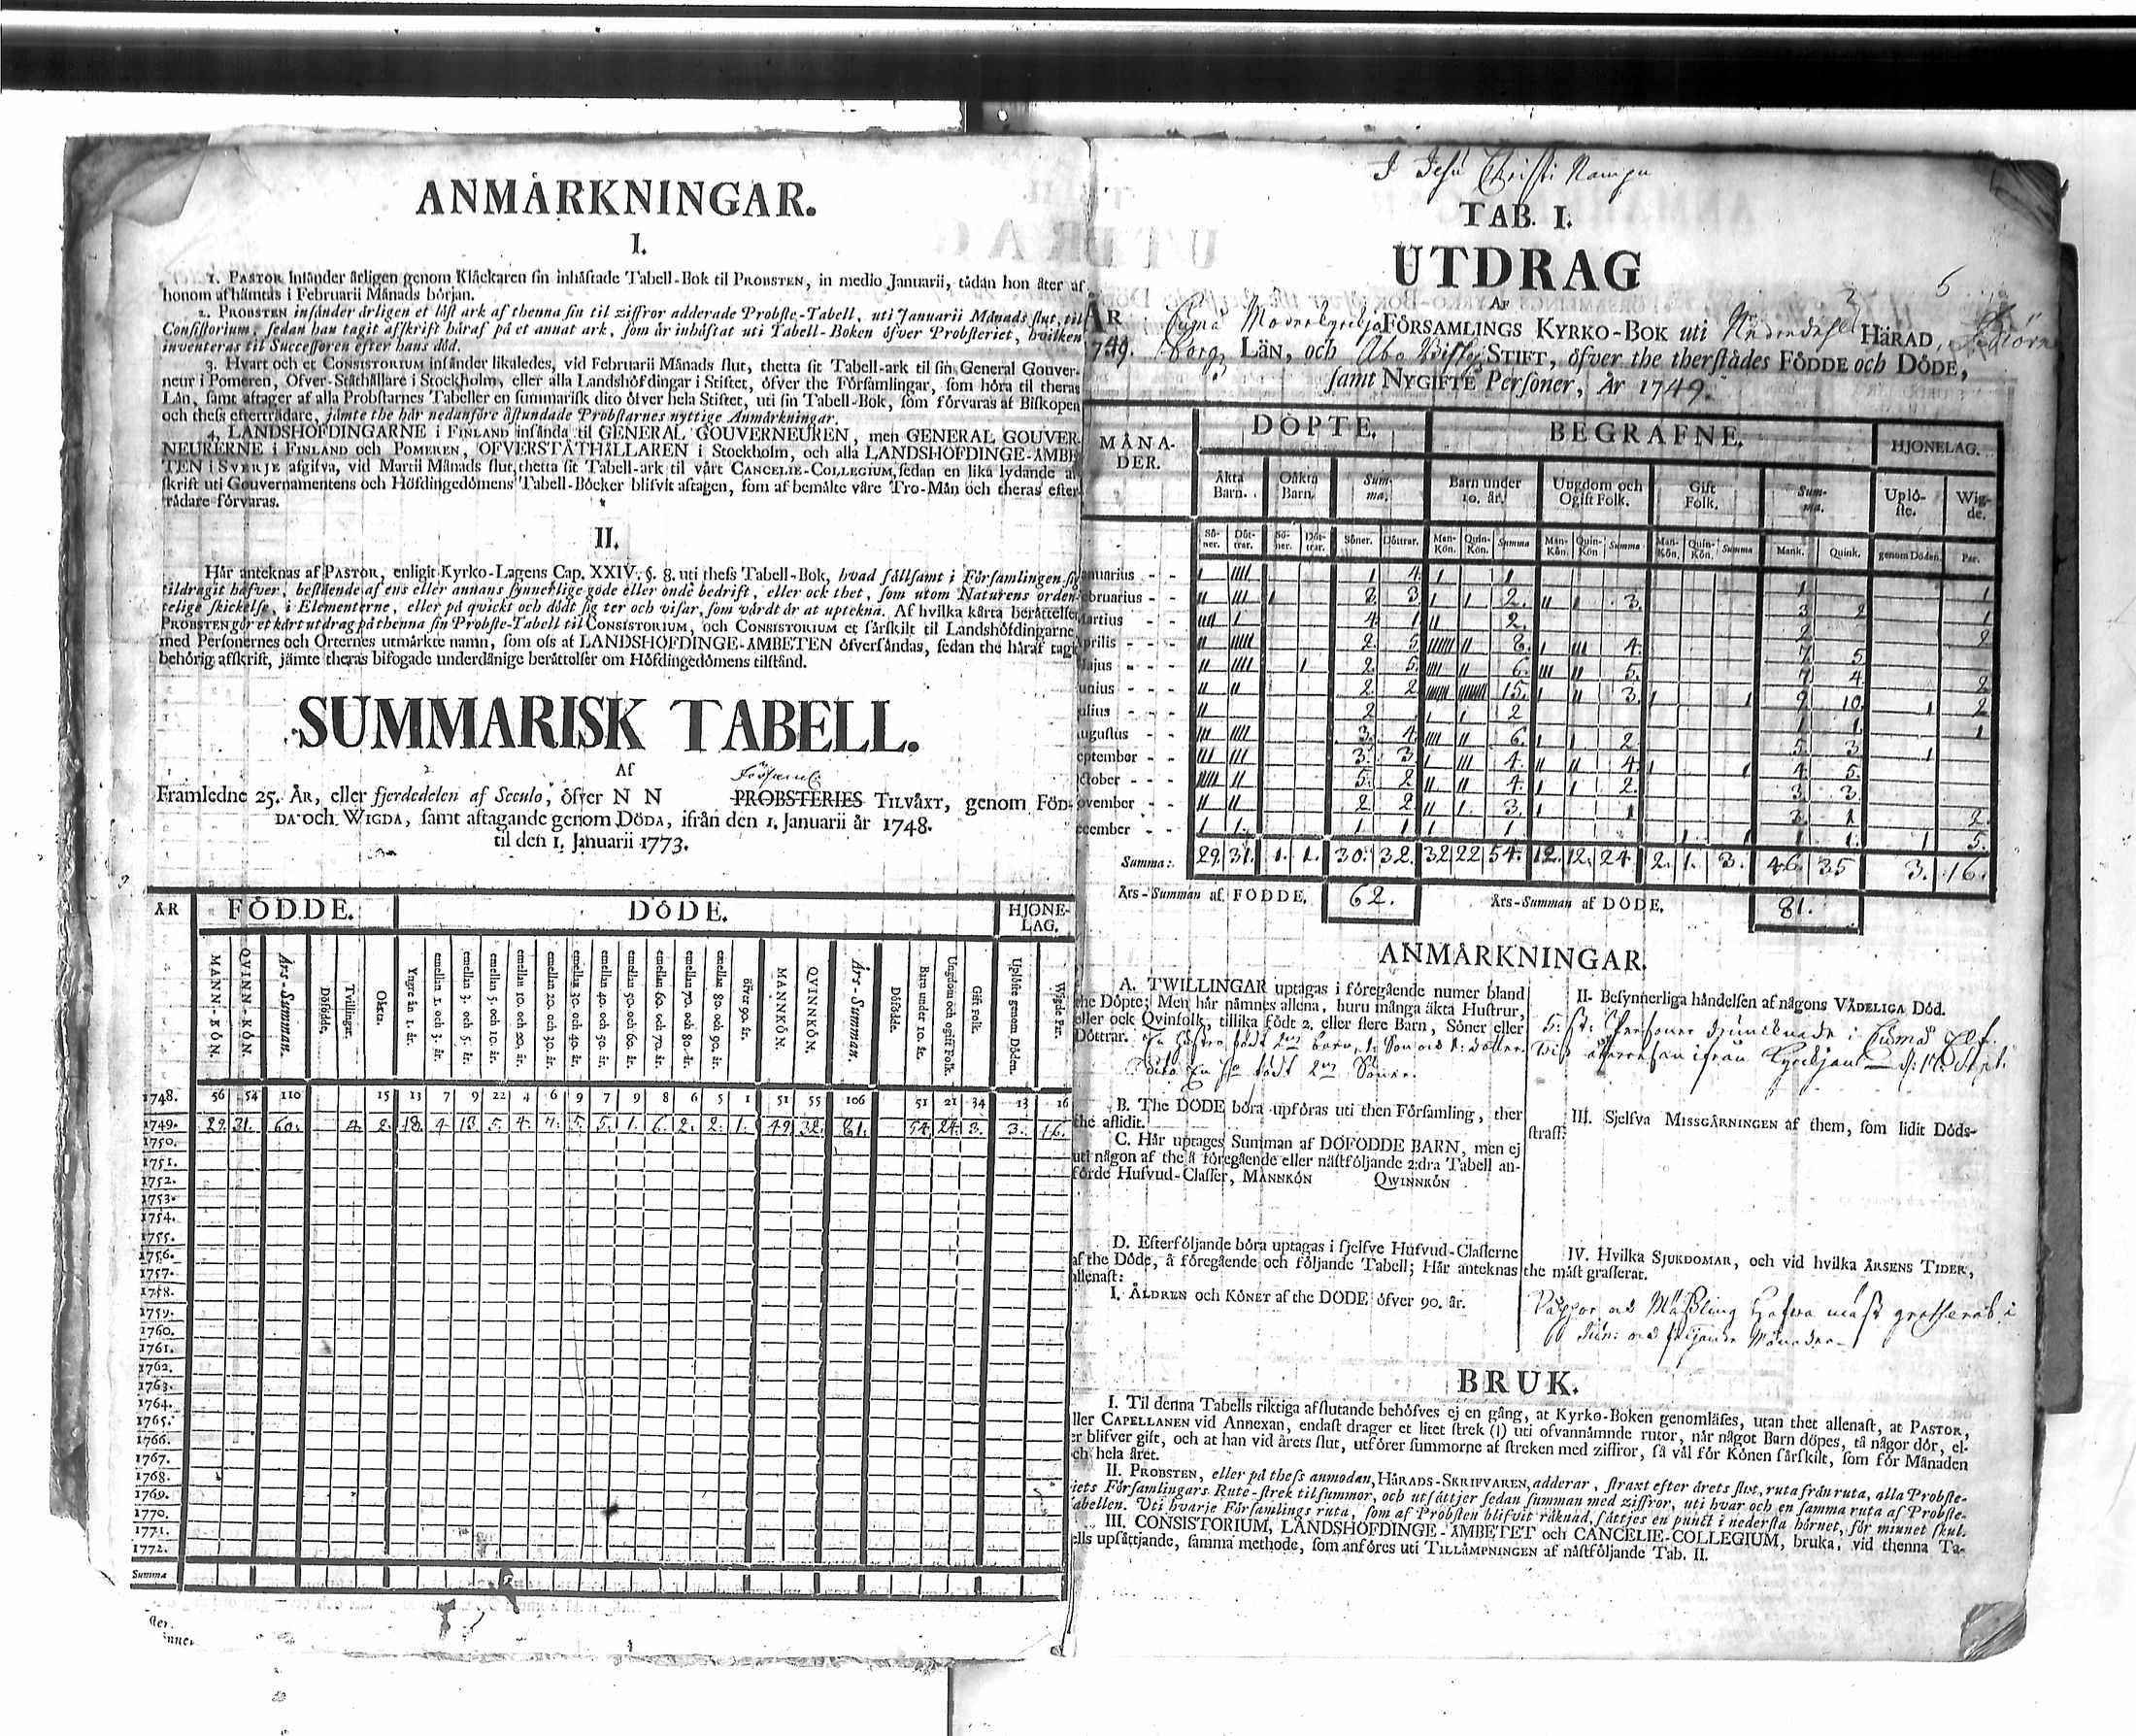 ANMÅRKNINGAR.
I.
1. PASTOR insånder årligen genom Klåckaren sin inhåftade Tabell-Bok til PROBSTEN, in medio Januarii, tådan hon åter af
honom afhåmtas i Februarii Månads början.
2. PROBSTEN insånder årligen et löst ark af thenna sin til ziffror adderade Probste-Tabell, uti Januarii Månads slut, til
Consistorium, sedan han tagit afskrift håraf på et annat ark, som år inhåftat uti Tabell-Boken öfver Probsteriet, hvilken
inventeras til Successoren efter hans död.
3. Hvart och et CONSISTORIUM insånder likaledes, vid Februarii Månads slut, thetta sit Tabell-ark til sin General Gouver-
neur i Pomeren, Öfver-Ståthållare i Stockholm, eller alla Landshöfdingar i Stiftet, öfver the Församlingar, som höra til theras
Lån, samt aftager af alla Probstarnes Tabeller en summarisk dito öfver hela Stiftet, uti sin Tabell-Bok, som förvaras af Biskopen
och thess efterträdare, jåmte the hår nedanföre åstundade Probstarnes nyttige Anmårkningar.
4. LANDSHÖFDINGARNE i FINLAND insånda til GENERAL GOUVERNEUREN, men GENERAL GOUVER-
NEURERNE i FINLAND och POMEREN, ÖFVERSTÅTHÅLLAREN i Stockholm, och alla LANDSHÖFDINGE-ÅMBE-
TEN i SVERJE afgifva, vid Martii Månads slut, thetta sit Tabell-ark til vårt CANCELIE-COLLEGIUM, sedan en lika lydande af-
skrift uti Gouvernamentens och Höfdingedömens Tabell-Böcker blifvit aftagen, som af bemålte våre Tro-Mån och theras efter-
trådare förvaras.
II.
Hår anteknas af PASTOR, enligit Kyrko-Lagens Cap. XXIV. §. 8. uti thess Tabell-Bok, hvad sållsamt i Församlingen sig
tildragit hafver, bestående af ens eller annans synnerlige gode eller onde bedrift, eller ock thet, som utom Naturens orden-
telige skickelse, i Elementerne, eller på quickt och dödt sig ter och visar, som vårdt år at uptekna. Af hvilka kårta beråttelser
PROBSTEN gör et kårt utdrag på thenna sin Probste-Tabell til CONSISTORIUM, och CONSISTORIUM et sårskilt til Landshöfdingarne,
med Personernes och Orternes utmårkte namn, som oss af LANDSHÖFDINGE-ÅMBETEN öfversåndas, sedan the håraf tagit
behörig afskrift, jåmte theras bifogade underdånige beråttelser om Höfdingedömens tilstånd.
SUMMARISK TABELL.
Af
Framledne 25. ÅR, eller fjerdedelen af Seculo, öfver N N PROBSTERIES TILVÅXT, genom FÖD-
DA och WIGDA, samt aftagande genom DÖDA, ifrån den 1. Januarii år 1748.
til den 1. Januarii 1773.
ÅR FÖDDE. DÖDE. HJONE-LAG.
MANN-KÖN. QVINN-KÖN. Års-Summan. Döfödde. Tvillingar. Oåkta. Yngre ån 1. år. emellan 1. och 3. år. emellan 3. och 5. år. emellan 5. och 10. år. emellan 10. och 20. år. emellan 20. och 30. år. emellan 30. och 40. år. emellan 40. och 50. år. emellan 50. och 60. år. emellan 60. och 70. år. emellan 70. och 80. år. emellan 80. och 90. år. öfver 90. år. MANNKÖN. QVINNKÖN. Års-Summan. Döfödde. Barn under 10. år. Ungdom och ogift Folk. Gift Folk. Uplöste genom Döden. Wigde Par.
1748. 56 54 110 15 13 7 9 22 4 6 9 7 9 8 6 5 1 51 55 106 51 21 34 13 16
1749. 29. 31. 60. 4. 2. 18. 4. 13. 5. 4. 7. 5. 5. 1. 6. 2. 2. 1. 49. 32. 81. 54. 24. 3. 3. 16.
1750.
1751.
1752.
1753.
1754.
1755.
1756.
1757.
1758.
1759.
1760.
1761.
1762.
1763.
1764.
1765.
1766.
1767.
1768.
1769.
1770.
1771.
1772.
Summa
I Jesu Christi Nampn
TAB. I.
UTDRAG
AF
ÅR Cumå Moderkyrckjo FÖRSAMLINGS KYRKO-BOK uti HÅRAD,
1749. borgz LÄN, och Åbo STIFT, öfver the therstådes FÖDDE och DÖDE,
samt NYGIFTE Personer, År 1749.
MÅNA-DER. DÖPTE. BEGRAFNE. HJONELAG.
Åkta Barn. Oåkta Barn. Sum-ma. Barn under 10. år. Ungdom och Ogift Folk. Gift Folk. Sum-ma. Uplö-ste. Wig-de.
Sö-ner. Döt-trar. Sö-ner. Döt-trar. Söner. Döttrar. Man-Kön. Quin-Kön. Summa Man-Kön. Quin-Kön Summa Man-Kön. Quin-Kön. Summa Mank. Quink. genom Döden. Par.
anuarius - - 1 4. 1 1 1
ebruarius - - 2. 3. 2. 3. 3 2 1
artius - - 4. 1. 2. 2 2
prilis - - 2. 5. 8. 4. 7. 5
ajus - - 2. 5. 6. 5. 7. 4.
unius - - 2. 2. 15. 3. 1 9. 10. 1 2
ulius - - 2 2 1 1. 1
ugustus - - 3. 4. 6. 2. 5. 3. 1
eptember - - 3. 3. 4. 4. 1 4. 5.
ctober - - - 5. 2 4. 2. 3. 3.
ovember - - 2 2 3. 1 3. 1 2.
ecember - - 1 1 1 1 1 1. 1 5.
Summa:. 29. 31. 1. 1. 30. 32. 32 22 54. 12. 12. 24. 2. 1. 3. 46. 35 3. 16.
Års-Summan af FÖDDE. 62. Års-Summan af DÖDE. 81.
ANMÅRKNINGAR.
A. TWILLINGAR uptagas i föregående numer bland
the Döpte; Men hår nåmnes allena, huru många åkta Hustrur,
eller ock Qvinfolk, tillika födt 2. eller flere Barn, Söner eller
Döttrar. En Hustro födt 2ne barn, 1. Son och 1. dotter.
Dito En födt 2ne Söner.
B. The DÖDE böra upföras uti then Församling, ther
the aflidit.
C. Hår uptages Summan af DÖFÖDDE BARN, men ej
uti någon af the å föregående eller nåstföljande 2:dra Tabell an-
förde Hufvud-Classer, MANNKÖN QWINNKÖN
D. Efterföljande böra uptagas i sjelfve Hufvud-Classerne
af the Döde, å föregående och följande Tabell; Hår anteknas
allenast:
I. ÅLDREN och KÖNET af the DÖDE öfver 90. år.
II. Besynnerliga håndelsen af någons VÅDELIGA Död.
5. st. Personer druncknade i Cumå Elf.
återresan ifrån Kyrckjan d: 17. Sept.
III. Sjelfva MISSGÅRNINGEN af them, som lidit Döds-
straff:
IV. Hvilka SJUKDOMAR, och vid hvilka ÅRSENS TIDER,
the måst grasserat.
Kåppor och Måßling hafwa måst grasserat i
Jun: och följande Månader
BRUK.
I. Til denna Tabells riktiga afslutande behöfves ej en gång, at Kyrko-Boken genomlåses, utan thet allenast, at PASTOR,
ller CAPELLANEN vid Annexan, endast drager et litet strek (|) uti ofvannåmnde rutor, når något Barn döpes, tå någor dör, el-
er blifver gift, och at han vid årets slut, utförer summorne af streken med ziffror, så vål för Könen sårskilt, som för Månaden
ch hela året.
II. PROBSTEN, eller på thess anmodan, HÅRADS-SKRIFVAREN, adderar, straxt efter årets slut, ruta från ruta, alla Probste-
iets Församlingars Rute-strek tilsummor, och utsåttjer sedan summan med ziffror, uti hvar och en samma ruta af Probste-
abellen. Uti hvarje Församlings ruta, som af Probsten blifvit råknad, såttjes en punct i nedersta hörnet, för minnet skul.
III. CONSISTORIUM, LANDSHÖFDINGE-ÅMBETET och CANCELIE-COLLEGIUM, bruka, vid thenna Ta-
ells upsåttjande, samma methode, som anföres uti TILLÅMPNINGEN af nåstföljande Tab. II.